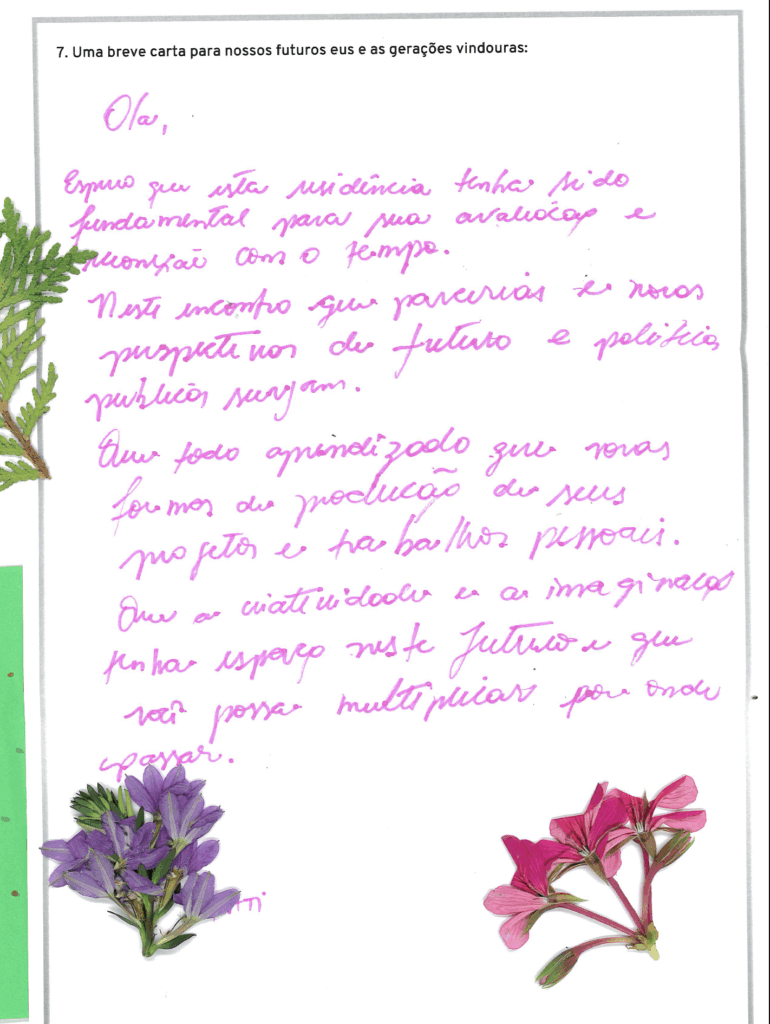 7. Uma breve carta para nossos futuros eus e as gerações vindouras:
Ola,
Espero que esta residência tenha sido
fundamental para sua e
com o tempo.
Neste encontro que parcerias e novas
perspectivas de futuro e politicas
publicas surjam.
Que todo aprendizado gere novas
formas de produção de seus
projetos e trabalhos pessoais.
Que a criatividade e a imaginação
tenha espaço neste futuro e que
você possa multiplicar por onde
passar.